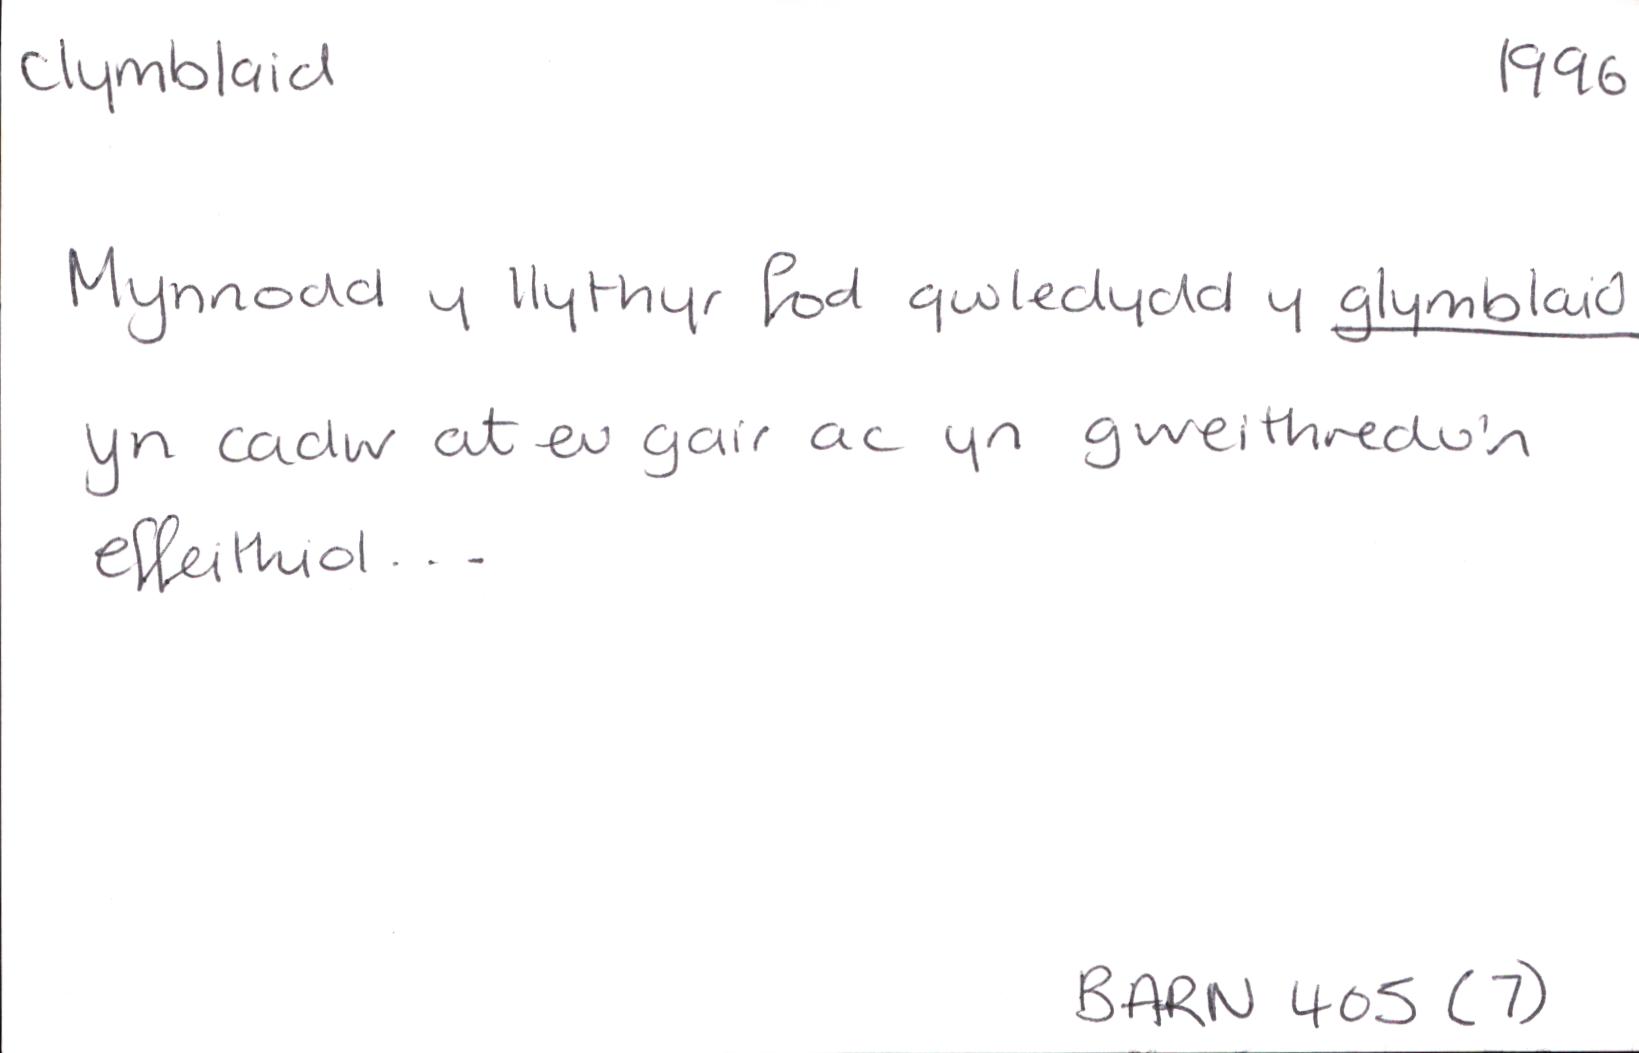 clymblaid 1996
Mynnodd y llythyr fod gwledydd y glymblaid
yn cadw at eu gair ac yn gweithredu'n
effeithiol...
BARN 405 (7)